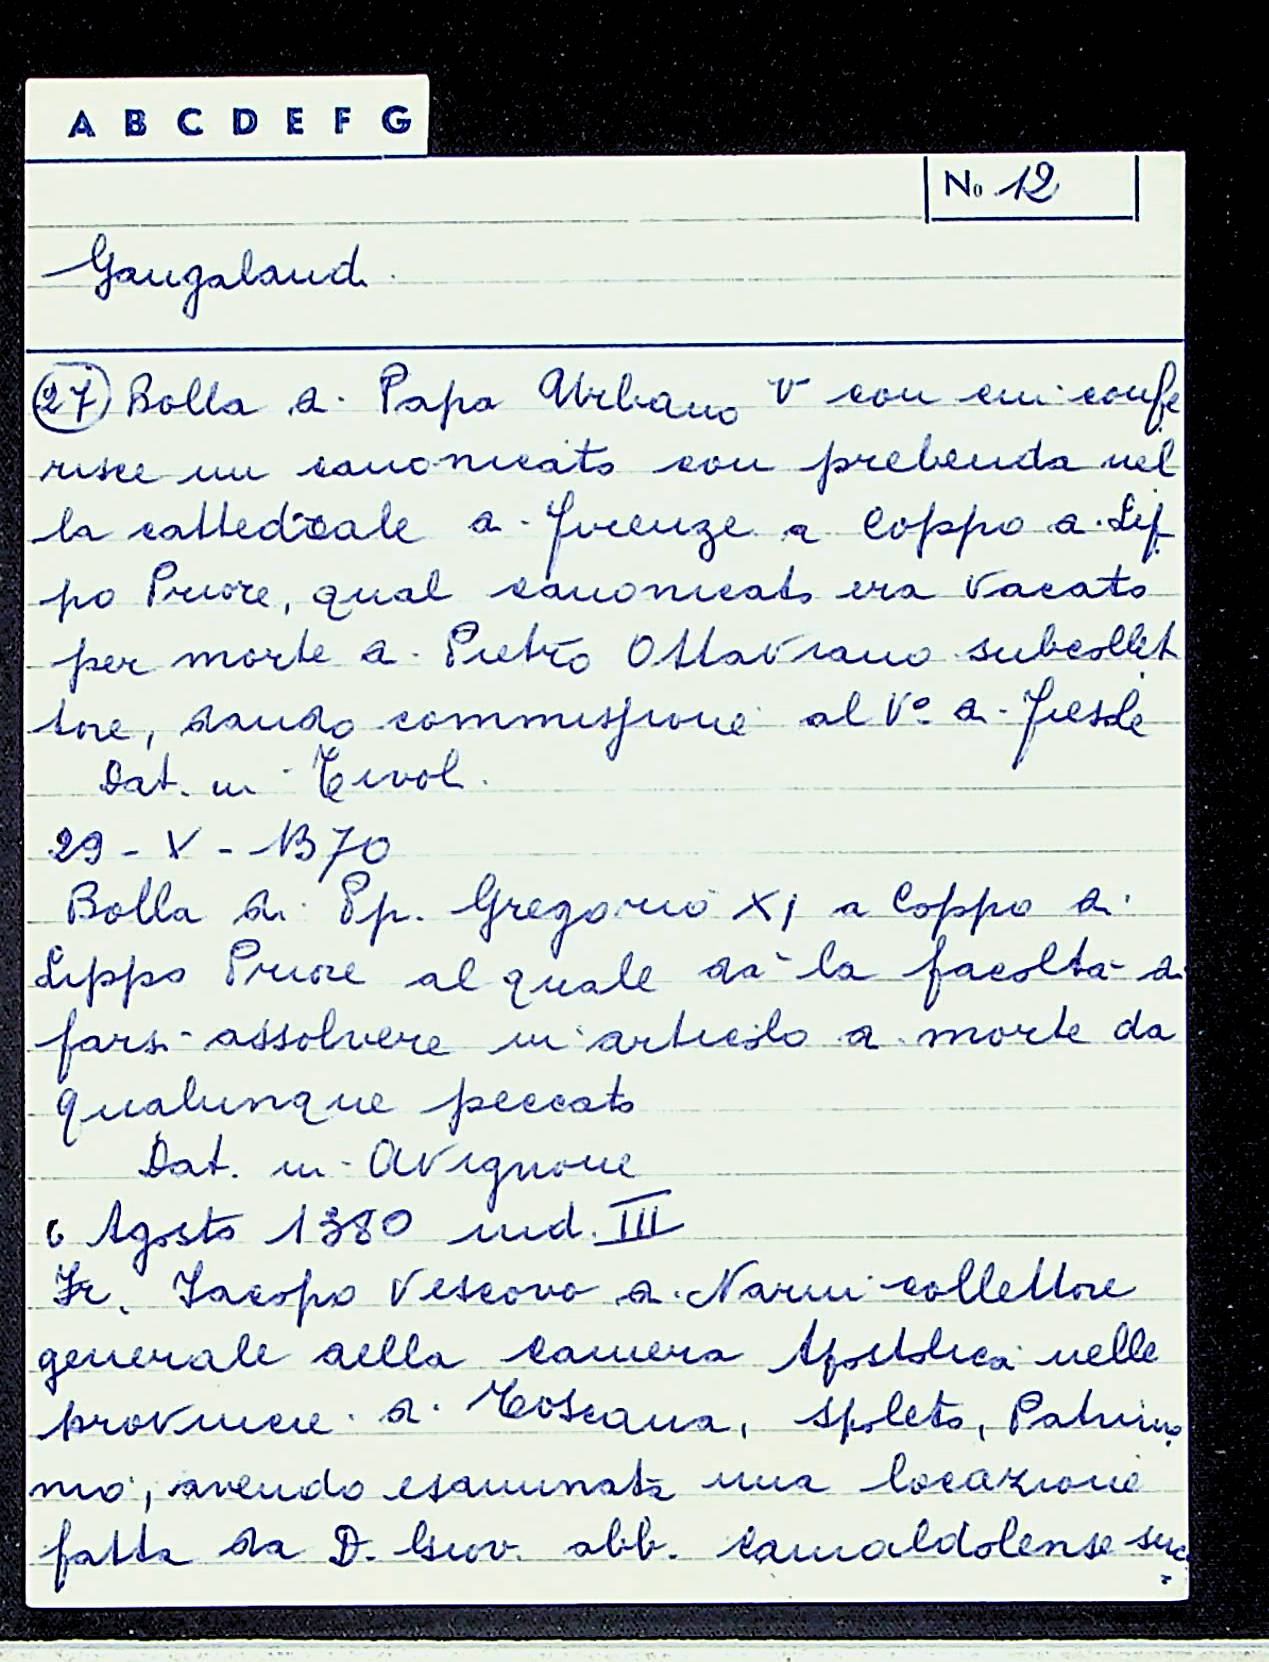 A B C D E F G
No 12
Gangaland.
27 Bolla di Papa Urbano V con cui confe
risce un canonicato con prebenda nel
la cattedrale di Firenze a Coppo di Lip
po Priore, qual canonicato era vacato
per morte di Pietro Ottaviano subcollet
tore, dando commissione al Vº di Fiesole
Dat. in Tivoli.
29 - X - 1370
Bolla di Pp. Gregorio XI a Coppo di
Lippo Priore al quale dà la facoltà di
farsi assolvere in articolo di morte da
qualunque peccato
Dat. in Avignone
6 Agosto 1380 ind. III
Fr. Iacopo Vescovo di Narni collettore
generale della Camera Apostolica nelle
provincie di Toscana, Spoleto, Patrimo
nio, avendo esaminata una locazione
fatta da D. Giov. abb. camaldolense